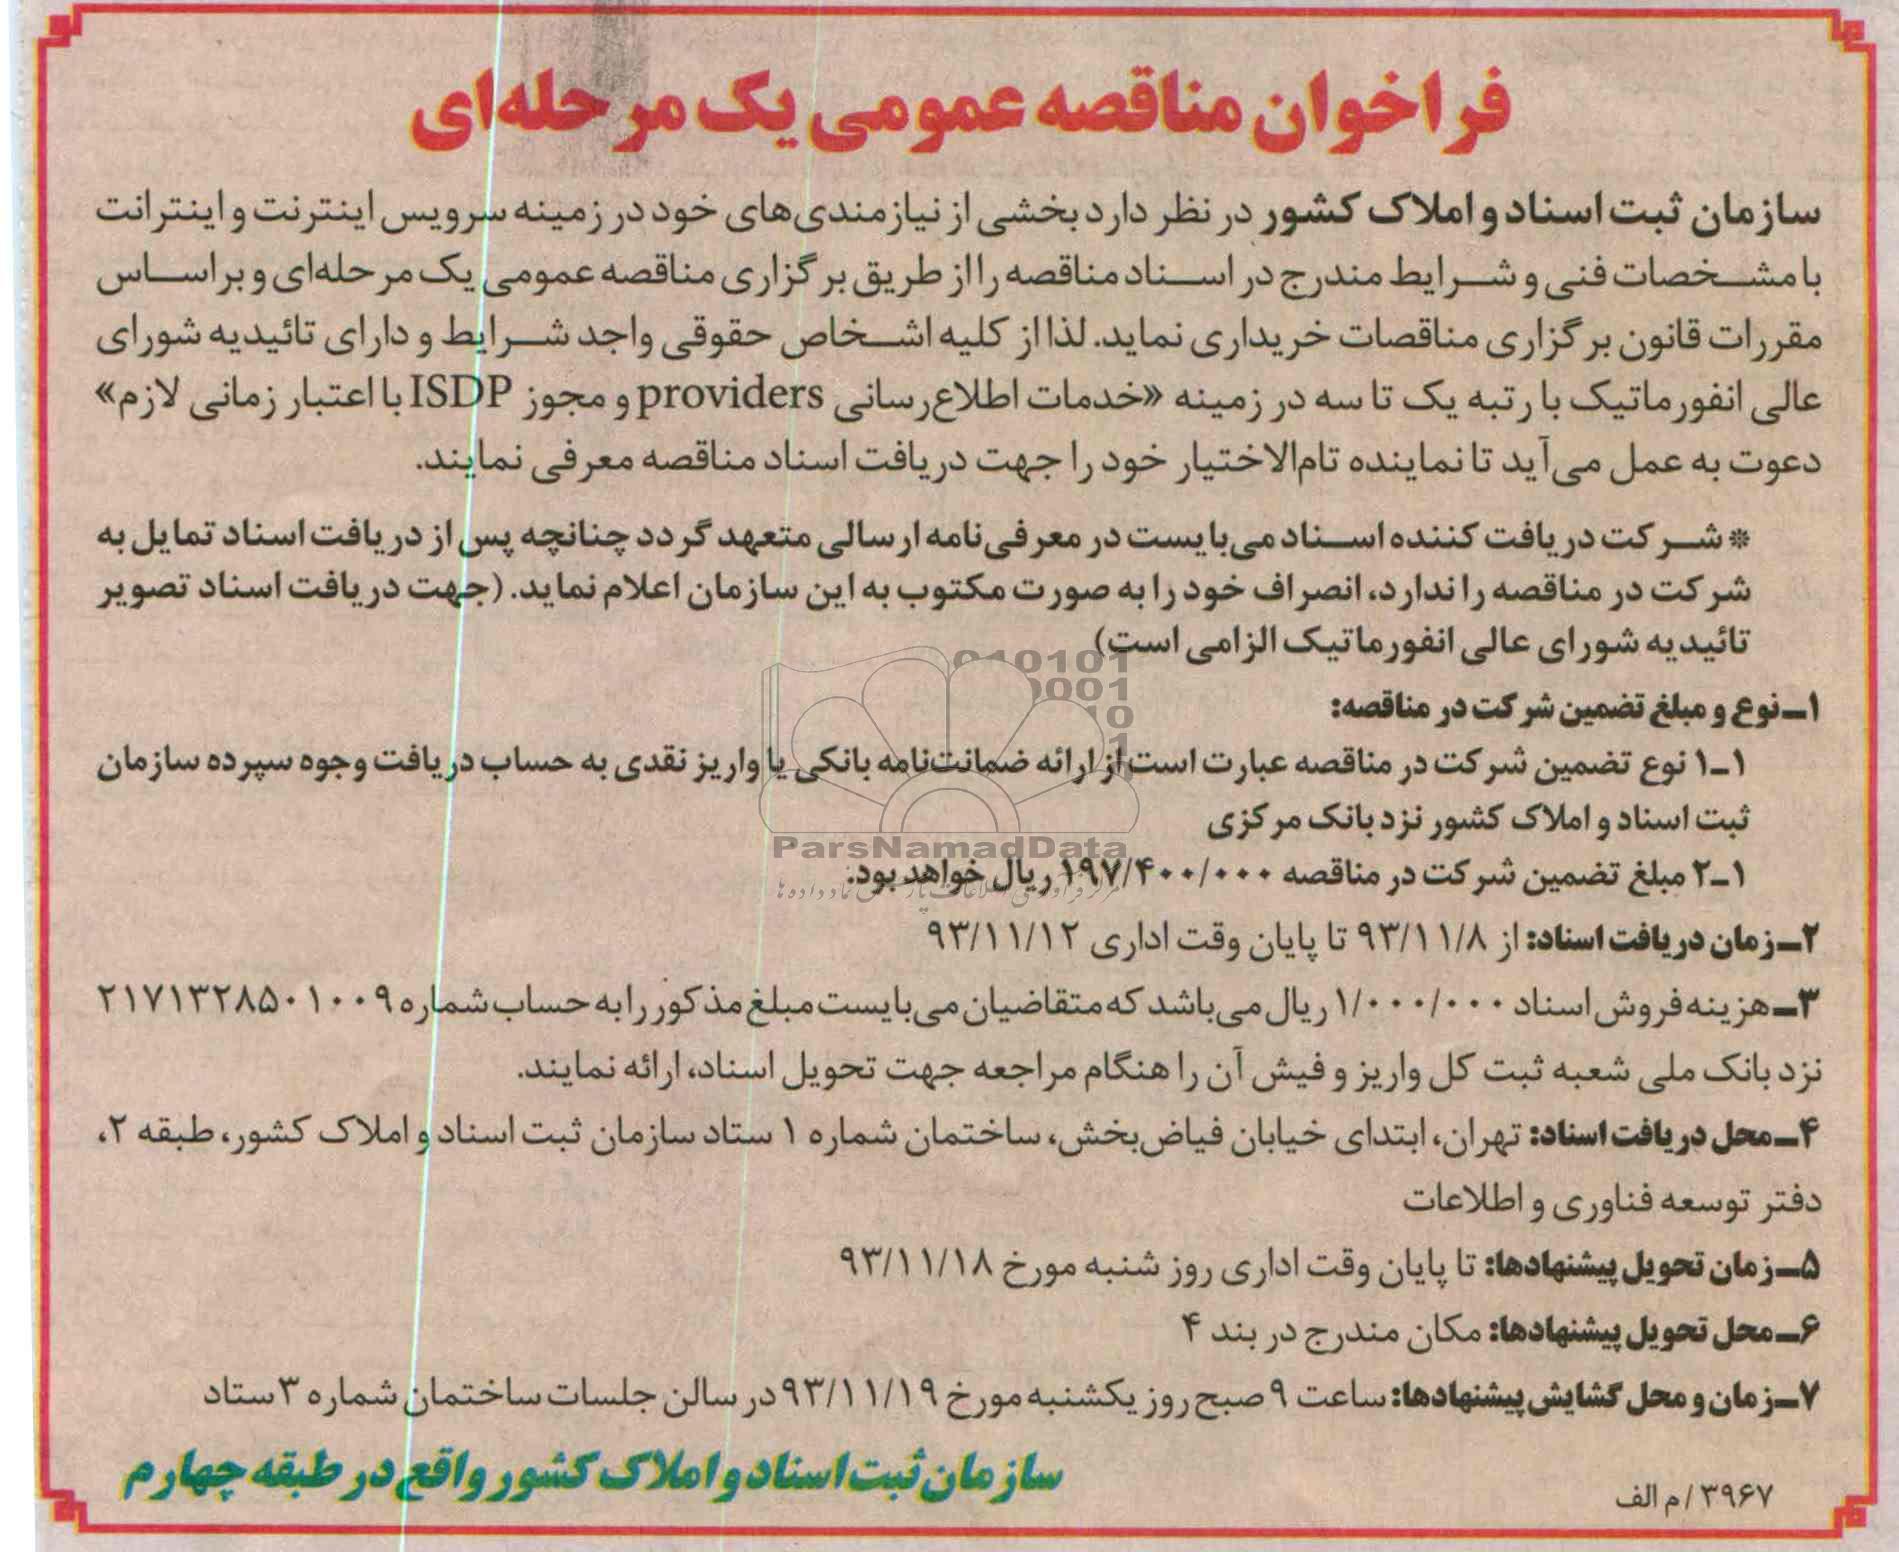 فراخوان مناقصه عمومی یک مرحله‌ای
سازمان ثبت اسناد و املاک کشور در نظر دارد بخشی از نیازمندی‌های خود در زمینه سرویس اینترنت و اینترانت
با مشخصات فنی و شرایط مندرج در اسناد مناقصه را از طریق برگزاری مناقصه عمومی یک مرحله‌ای و براساس
مقررات قانون برگزاری مناقصات خریداری نماید. لذا از کلیه اشخاص حقوقی واجد شرایط و دارای تائیدیه شورای
عالی انفورماتیک با رتبه یک تا سه در زمینه «خدمات اطلاع‌رسانی providers و مجوز ISDP با اعتبار زمانی لازم»
دعوت به عمل می‌آید تا نماینده تام‌الاختیار خود را جهت دریافت اسناد مناقصه معرفی نمایند.
* شرکت دریافت کننده اسناد می‌بایست در معرفی‌نامه ارسالی متعهد گردد چنانچه پس از دریافت اسناد تمایل به
شرکت در مناقصه را ندارد، انصراف خود را به صورت مکتوب به این سازمان اعلام نماید. (جهت دریافت اسناد تصویر
تائیدیه شورای عالی انفورماتیک الزامی است)
۱ـ نوع و مبلغ تضمین شرکت در مناقصه:
۱ـ۱ نوع تضمین شرکت در مناقصه عبارت است از ارائه ضمانت‌نامه بانکی یا واریز نقدی به حساب دریافت وجوه سپرده سازمان
ثبت اسناد و املاک کشور نزد بانک مرکزی
۲ـ۱ مبلغ تضمین شرکت در مناقصه ۱۹۷/۴۰۰/۰۰۰ ریال خواهد بود.
۲ـ زمان دریافت اسناد: از ۹۳/۱۱/۸ تا پایان وقت اداری ۹۳/۱۱/۱۲
۳ـ هزینه فروش اسناد ۱/۰۰۰/۰۰۰ ریال می‌باشد که متقاضیان می‌بایست مبلغ مذکور را به حساب شماره ۲۱۷۱۳۲۸۵۰۱۰۰۹
نزد بانک ملی شعبه ثبت کل واریز و فیش آن را هنگام مراجعه جهت تحویل اسناد، ارائه نمایند.
۴ـ محل دریافت اسناد: تهران، ابتدای خیابان فیاض‌بخش، ساختمان شماره ۱ ستاد سازمان ثبت اسناد و املاک کشور، طبقه ۲،
دفتر توسعه فناوری و اطلاعات
۵ـ زمان تحویل پیشنهادها: تا پایان وقت اداری روز شنبه مورخ ۹۳/۱۱/۱۸
۶ـ محل تحویل پیشنهادها: مکان مندرج در بند ۴
۷ـ زمان و محل گشایش پیشنهادها: ساعت ۹ صبح روز یکشنبه مورخ ۹۳/۱۱/۱۹ در سالن جلسات ساختمان شماره ۳ ستاد
سازمان ثبت اسناد و املاک کشور واقع در طبقه چهارم
۳۹۶۷/ م الف
ParsNamadData